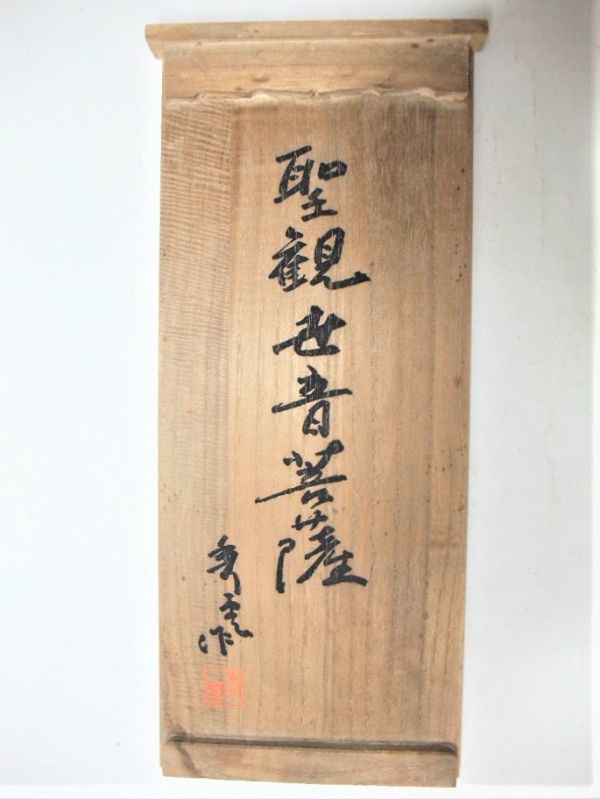 聖観世音菩薩
秀雲作